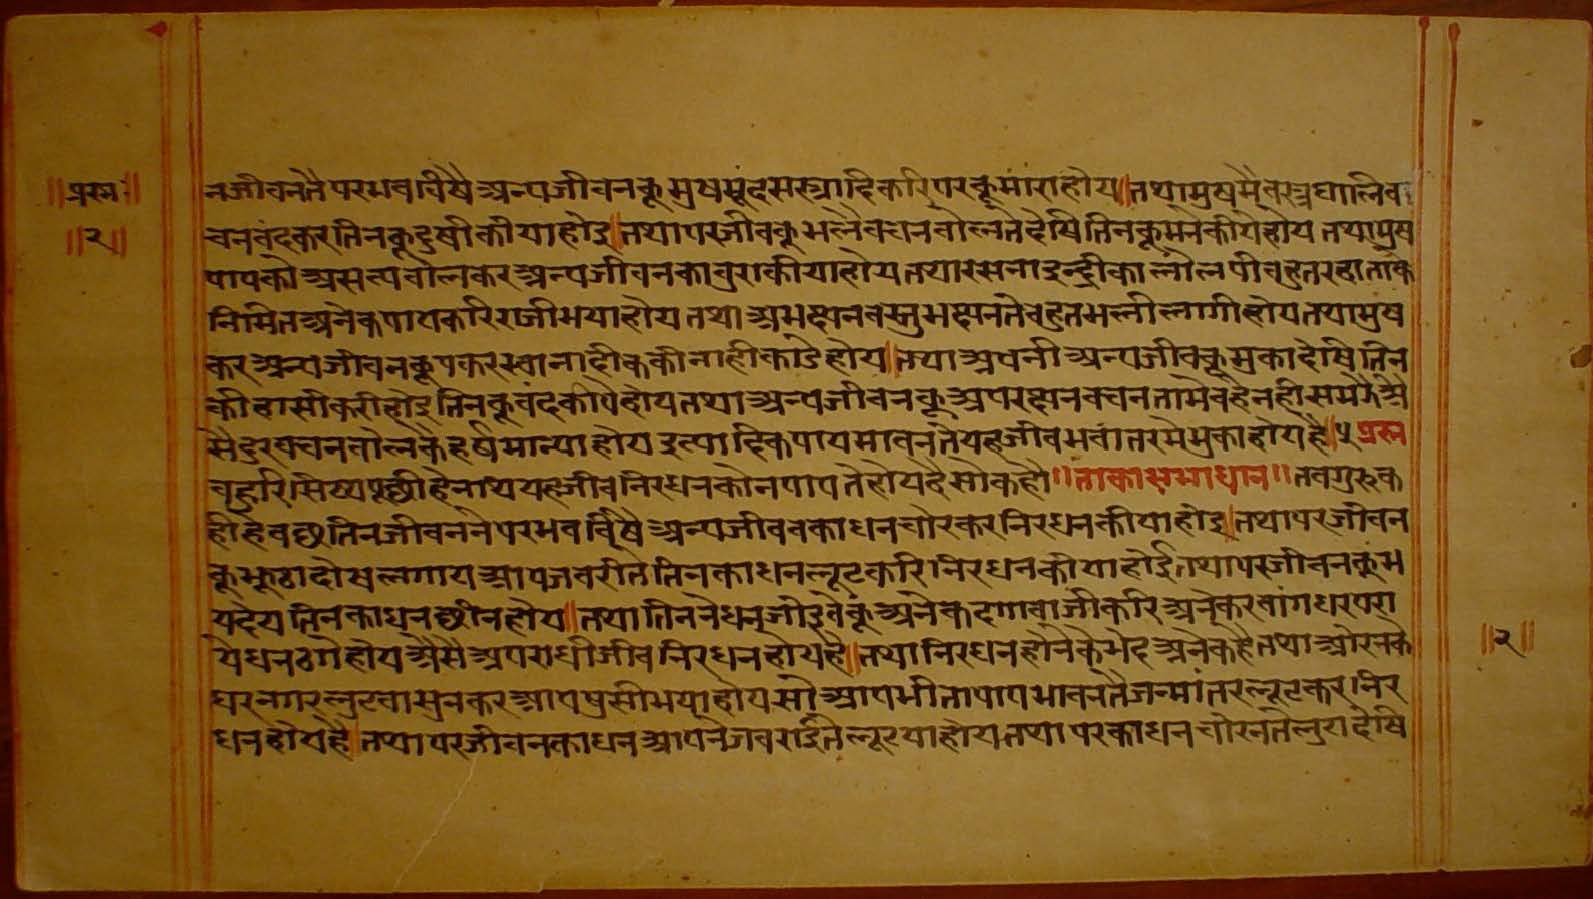 ॥प्रस्न॥
॥२॥
नजीवनतै परभव विषै अन्यजीवनकू मुष मूंद सस्त्रादिकरि परकू मारा होय॥ तथा मुष मै वस्त्र घालि व
चन बंद कर तिनकू दुषी कीया होइ॥ तथा परजीवकू भलै वचन बोलते देषि तिनकू मनै कीये होय तथा मुष
पापकौ असत्य बोलकर अन्यजीवनका बुरा कीया होय तथा रसना इन्द्रीका लोलपी बहुत रहा ताकै
निमित अनेक पापकरि राजी भया होय तथा अभक्षन वस्तु भक्षनतै बहुत भली लागी होय तथा मुष
कर अन्यजीवनकू पकर स्वानादीक की नाही काडे होय॥ तथा अपनी अन्यजीवकू मुका देषि तिन
की हासी करी होइ तिनकू बंद कीये होय तथा अन्यजीवनकू अपरक्षन वचन तामै वहै नही समझे अै
सै दुरवचन बोलकै हर्ष मान्या होय इत्यादिक पापभावनतै यह जीव भवांतर मै मुका होय है॥५ प्रस्न
बहुरि सिष्य पूछी हे नाथ यह जीव निरधन कौन पापतै होय है सो कहौ॥ ताका समाधान॥ तब गुरु क
ही हे वछ तिन जीवननै परभव विषै अन्यजीवनका धन चोरकर निरधन कीया होइ॥ तथा परजीवन
कू झूठा दोष लगाय आप जबरीतै तिनका धन लूटकरि निरधन कीया होई तथा परजीवनकूं भ
य देय तिनका धन छीन होय॥ तथा तिननै धन जोडवेकूं अनेक दगाबाजी करि अनेकर वांग धर परा
ये धन ठगे होय अैसै अपराधी जीव निरधन होय है॥ तथा निरधन होनेके भेद अनेक है तथा औरनके
घर नगर लुटवा सुनकर आप षुसी भया होय सो आप भी ता पापभावनतै जन्मांतर लूटकर निर
धन होय है॥ तथा परजीवनका धन आपनै जबराईतै लूटया होय तथा परका धन चोरनतै लुटा देषि
॥२॥